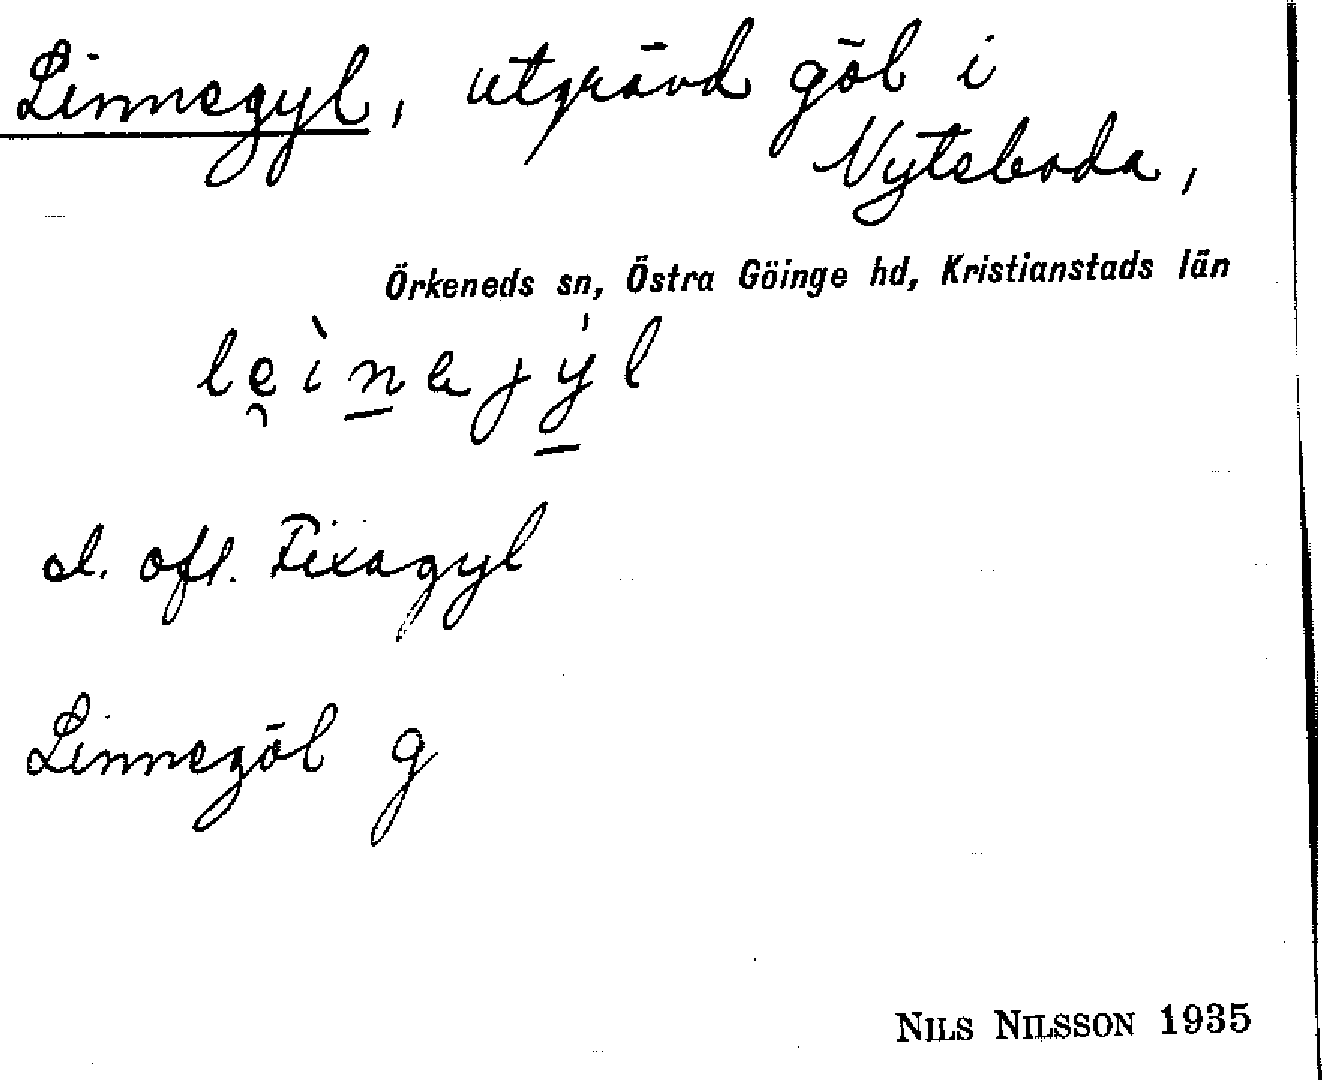 Linnegyl, utgrävd göl i
Nyteboda,
Örkeneds sn, Östra Göinge hd, Kristianstads län
le̯ìnejýl
el. oft. Fixagyl
Linnegöl g
NILS NILSSON 1935